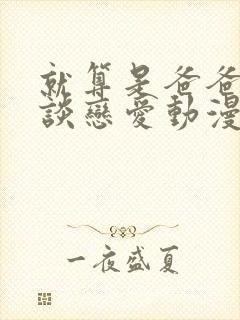 就算是爸爸
談戀愛動漫
一夜盛夏